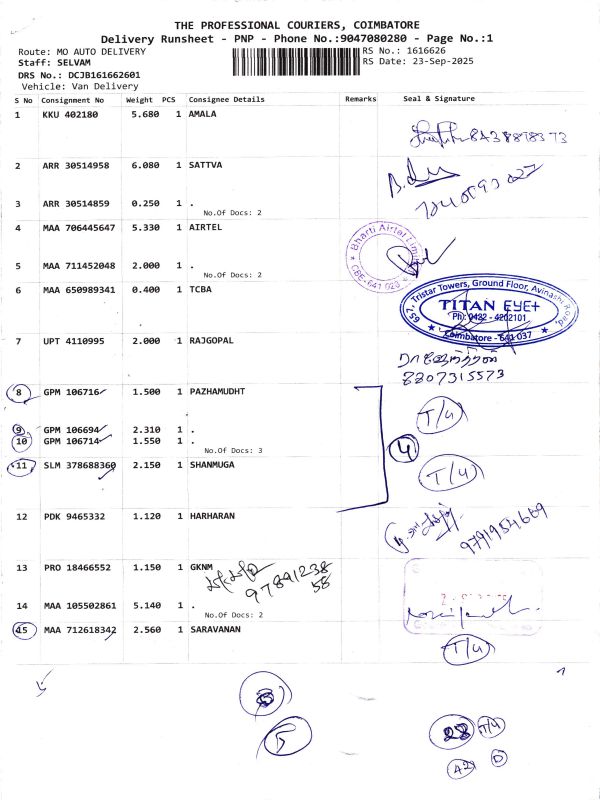 THE PROFESSIONAL COURIERS, COIMBATORE
Delivery Runsheet - PNP - Phone No.:9047080280 - Page No.:1
Route: MO AUTO DELIVERY RS No.: 1616626
Staff: SELVAM RS Date: 23-Sep-2025
DRS No.: DCJB161662601
Vehicle: Van Delivery
S No Consignment No Weight PCS Consignee Details Remarks Seal & Signature
1 KKU 402180 5.680 1 AMALA
2 ARR 30514958 6.080 1 SATTVA
3 ARR 30514859 0.250 1 .
No.Of Docs: 2
4 MAA 706445647 5.330 1 AIRTEL
Bharti Airtel Limited
CBE-641 028
5 MAA 711452048 2.000 1 .
No.Of Docs: 2
6 MAA 650989341 0.400 1 TCBA
65/1, Tristar Towers, Ground Floor, Avinashi Road,
TITAN EYE+
Ph: 0422 - 4202101
Coimbatore - 641 037
7 UPT 4110995 2.000 1 RAJGOPAL
8807315573
8 GPM 106716 1.500 1 PAZHAMUDHT
T/4
9 GPM 106694 2.310 1 .
10 GPM 106714 1.550 1 .
No.Of Docs: 3
4
11 SLM 378688360 2.150 1 SHANMUGA
T/4
12 PDK 9465332 1.120 1 HARHARAN
9791954669
13 PRO 18466552 1.150 1 GKNM
97891238
58
14 MAA 105502861 5.140 1 .
No.Of Docs: 2
15 MAA 712618342 2.560 1 SARAVANAN
T/4
5
28 T/4
42 D